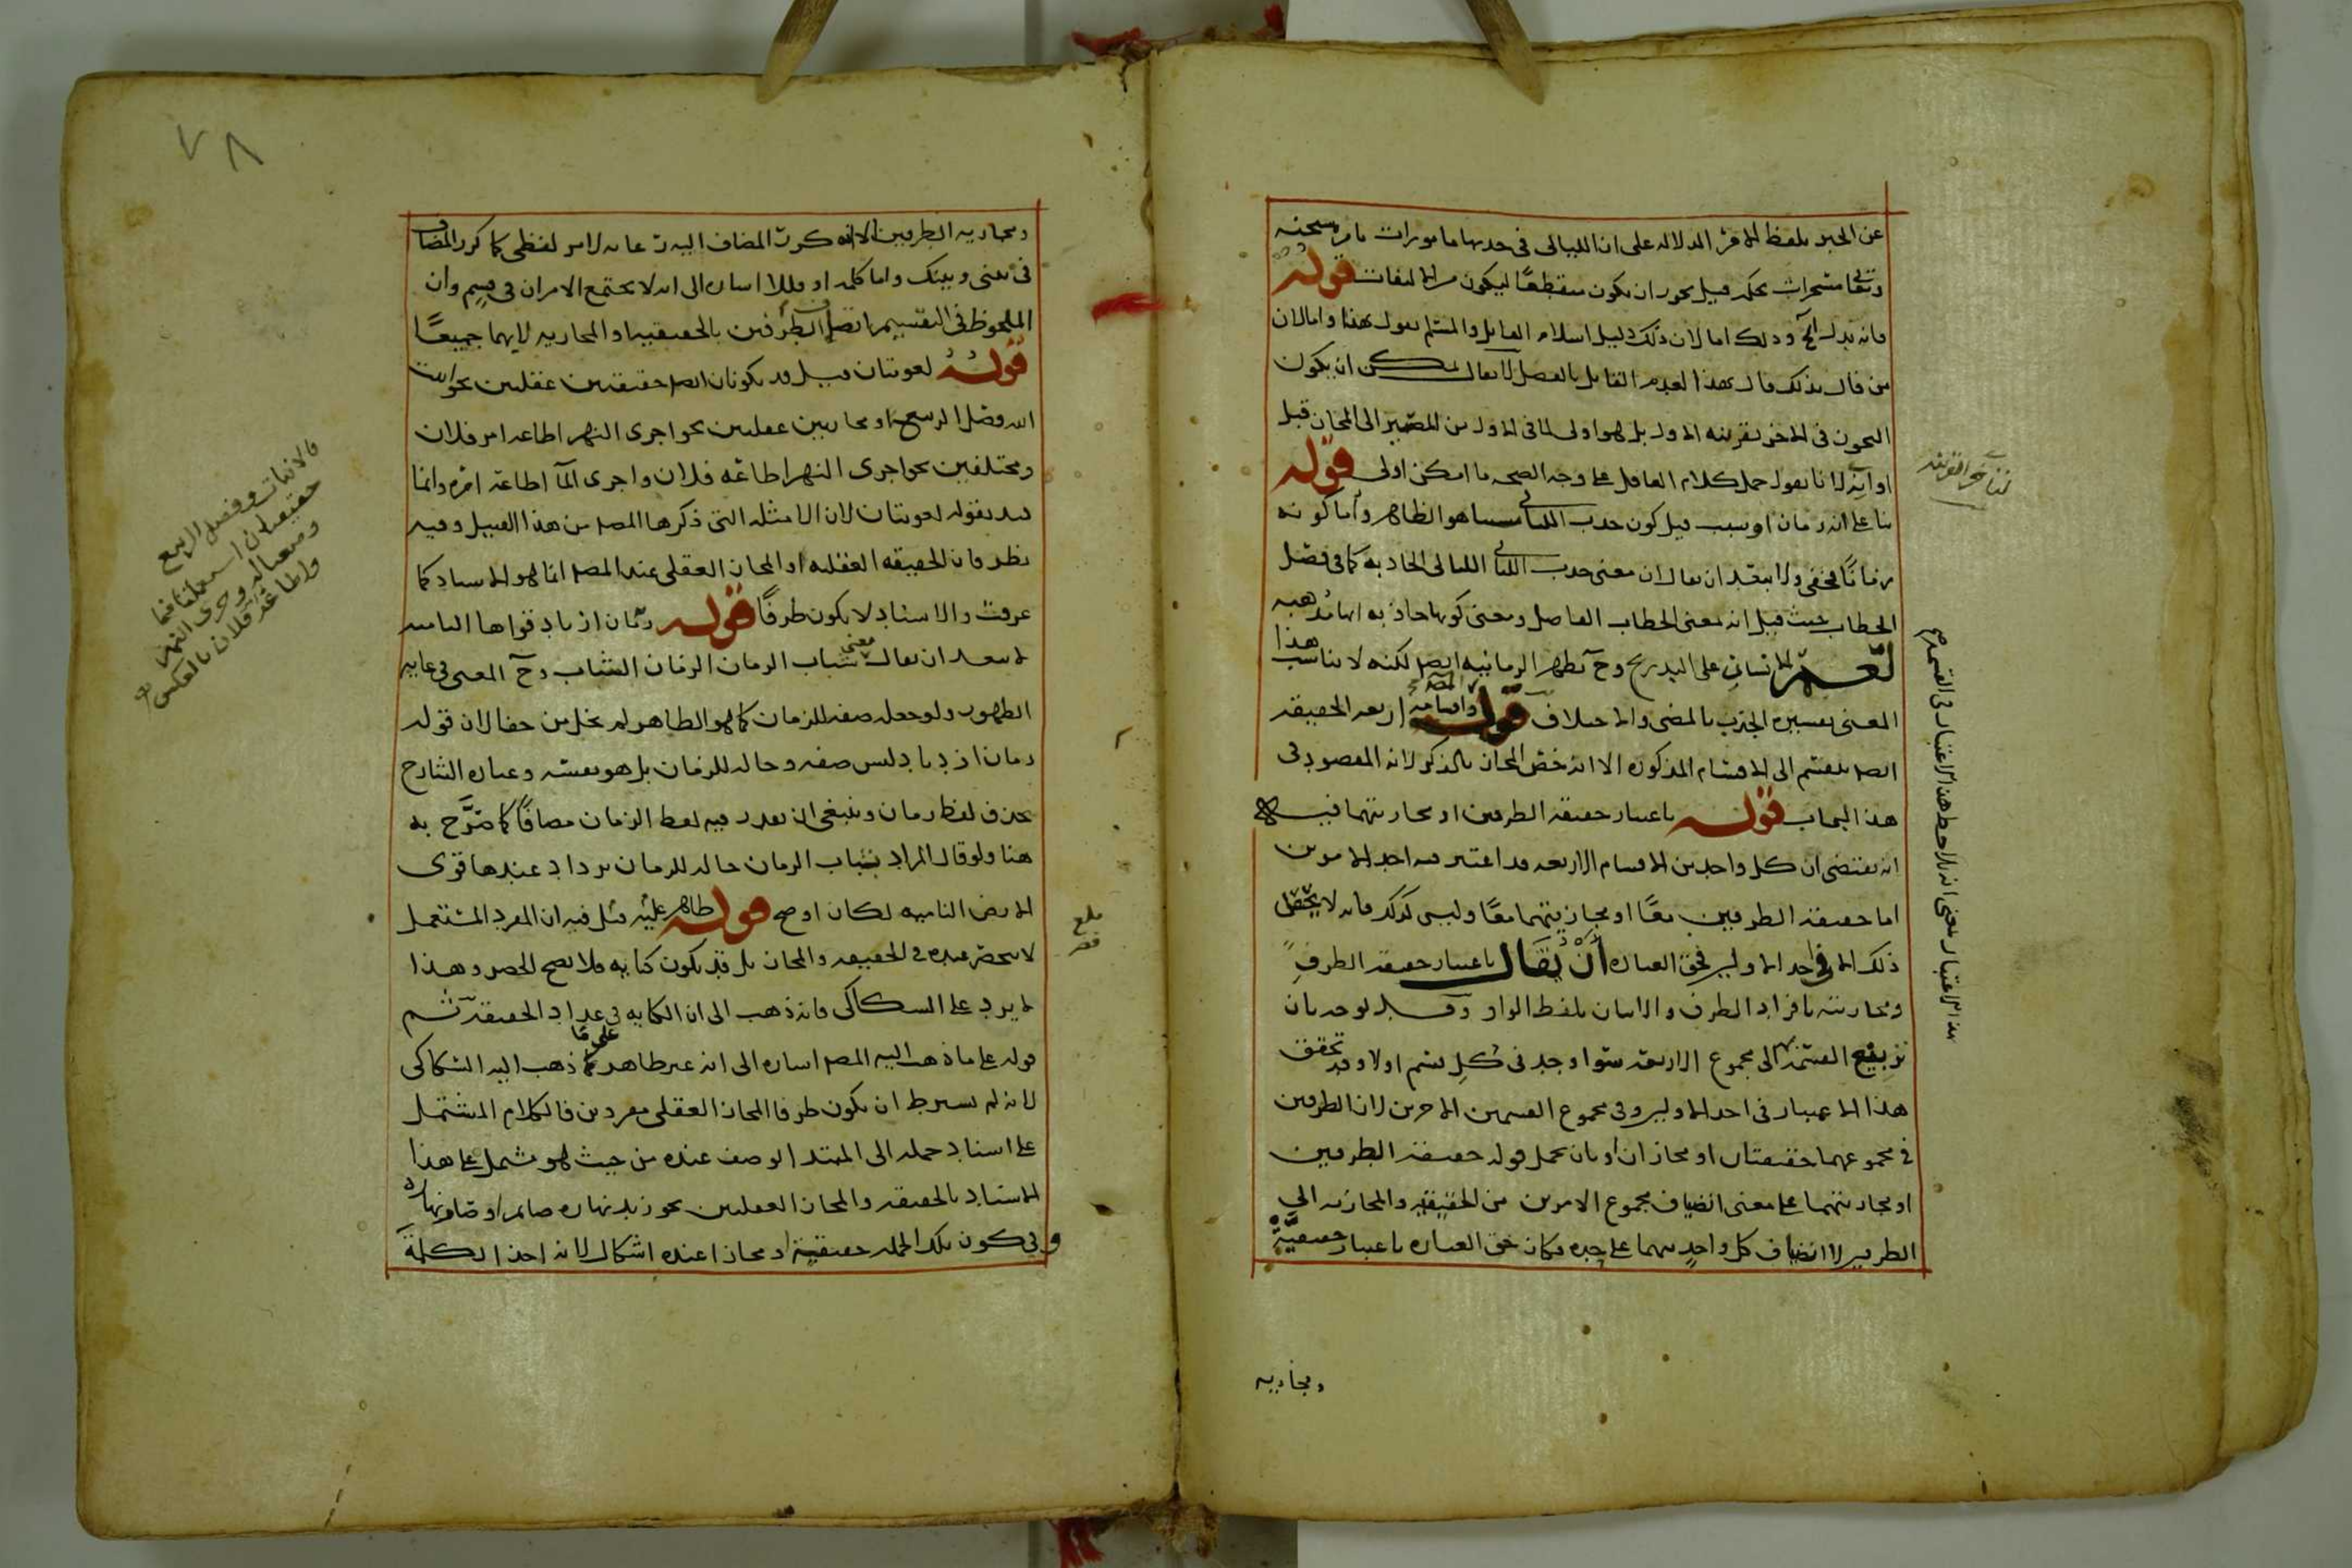 عن الخبر بلفظ الامر الدلالة على ان الليالى فى حديها مامورات بامره سبحنه
وتعالى مسخرات بحكمه قيل يجوز ان يكون منقطعًا ليكون من الالتفات قوله
فانه يدل الخ وذلك اما لان ذلك دليل اسلام القايل والمسلم يقول بهذا واما لان
من قال بذلك قال بهذا لعدم القايل بالفصل لا يقال يمكن ان يكون
التجوز فى الاخر بقرينة الاول بل هو اولى لما فى الاول من المصير الى المجاز قبل
اوانه لانا نقول حمل كلام العاقل على وجه الصحه ما امكن اولى قوله
بنا على انه زمان او سبب قيل كون جذب الليالى سببا هو الظاهر واما كونه
زمانًا فخفى ولا يبعد ان يقال ان معنى جذب الليالى الليالى الجاذبه كما فى فصل
الخطاب حيث قيل انه بمعنى الخطاب الفاصل ومعنى كونها جاذبه انها مذهبه
لعمر الانسان على التدريج وح تظهر الزمانيه ايضا لكنه لا يناسب هذا
المعنى تفسيره الجذب بالمضى والاختلاف قوله واقسامه اربعه الحقيقه
ايضا ينقسم الى الاقسام المذكوره الا انه خص المجاز بالذكر لانه المقصود فى
هذا الباب قوله باعتبار حقيقة الطرفين او مجازيتهما فيه
انه يقتضى ان كل واحد من الاقسام الاربعه قد اعتبر فيه احد الامرين
اما حقيقة الطرفين معًا او مجازيتهما معًا وليس كذلك فانه لا يتحقق
ذلك الا فى احد الاولين فحق العباره أَنْ يُقَال باعتبار حقيقة الطرف
ومجازيته بافراد الطرف والاتيان بلفظ الواو وقد يوجه بان
تربيع القسمة الى مجموع الاربعه سوا وجد فى كل قسم اولا وقد تحقق
هذا الاعتبار فى احد الاولين وفى مجموع القسمين الاخرين لان الطرفين
فى مجموعهما حقيقتان او مجازان او بان يحمل قوله حقيقة الطرفين
او مجازيتهما على معنى انضياف مجموع الامرين من الحقيقيه والمجازيه الى
الطرفين لا انضياف كل واحد منهما على حده فكان حق العباره باعتبار حقيقيَّة
ومجازيه
ومجازيه الطرفين الا انه كرر المضاف اليه رعايه لامر لفظى كما كرر المضاف
فى بينى وبينك واما كلمه او فللاشاره الى انه لا يجتمع الامران فى قسم وان
الملحوظ فى التقسيم اتصاف الطرفين بالحقيقيه او المجازيه لا بهما جميعًا
قوله لغويتان قيل قد يكونان ايضا حقيقتين عقليتين نحو انبت
الله وفصل الربيع او مجازيين عقليين نحو اجرى النهر اطاعة امر فلان
ومختلفين نحو اجرى النهر اطاعة فلان واجرى الما اطاعة امره وانما
قيد بقوله لغويتان لان الامثله التى ذكرها المص من هذا القبيل وفيه
نظر فان الحقيقه العقليه او المجاز العقلى عند المص انما هو الاسناد كما
عرفت والاسناد لا يكون طرفًا قوله زمان ازدياد قواها الناميه
لا يبعد ان يقال معنى شباب الزمان الزمان الشباب وح المعنى فى غايه
الظهور ولو جعله صفه للزمان كما هو الظاهر لم يخل من خفا لان قوله
زمان ازدياد ليس صفه وحاله للزمان بل هو نفسه وعباره الشارح
بحذف لفظ زمان وينبغى ان يقدر فيه لفظ الزمان مضافًا كما صَرَّح به
هنا ولو قال المراد بشباب الزمان حاله للزمان يزداد عندها قوى
الارض الناميه لكان اوضح قوله ظاهر عليه قيل فيه ان المفرد المستعمل
لا ينحصر عنده فى الحقيقه والمجاز بل قد يكون كنايه فلا يصح الحصر وهذا
لا يرد على السكاكى فانه ذهب الى ان الكنايه فى عداد الحقيقة ثم
قوله على ما ذهب اليه المص اشاره الى انه غير ظاهر على ما ذهب اليه السكاكى
لانه لم يشترط ان يكون طرفا المجاز العقلى مفردين فالكلام المشتمل
على اسناد جمله الى المبتدا لوصف عنده من حيث هو مشتمل على هذا
الاسناد بالحقيقه والمجاز العقليين نحو زيد نهاره صايم او صام نهاره
وفى كون تلك الجمله حقيقيّة او مجازا عنده اشكال لانه اخذ الكلمة
فالانبات وفصل الربيع
واطاعة فلان بالعكس
بلغ
٧٨